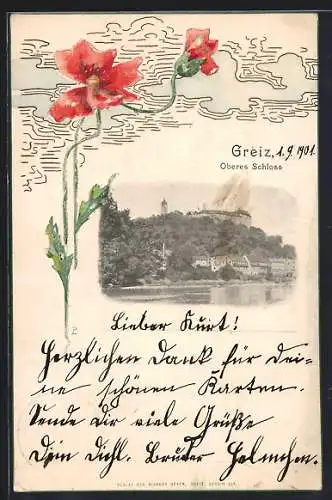 Greiz, 1.9.1901
Oberes Schloss
Lieber Kurt!
Herzlichen Dank für dei-
ne schönen Karten.
Sende dir viele Grüße
Dein dichl. Bruder Helmchen.